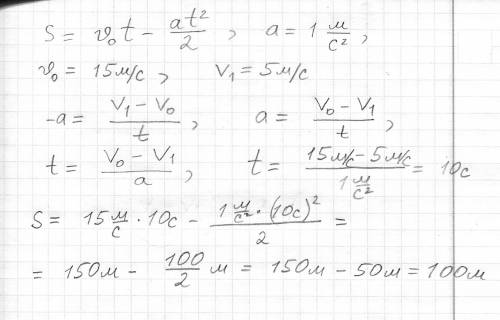 S = v₀t − at²/2 , a = 1 м/с² ,
v₀ = 15м/с , V₁ = 5м/с
-a = (V₁ − V₀)/t , a = (V₀ − V₁)/t ,
t = (V₀ − V₁)/a , t = (15м/с − 5м/с)/(1 м/с²) = 10с
S = 15 м/с · 10с − (1 м/с² · (10с)²)/2 =
= 150м − 100/2 м = 150м − 50м = 100м